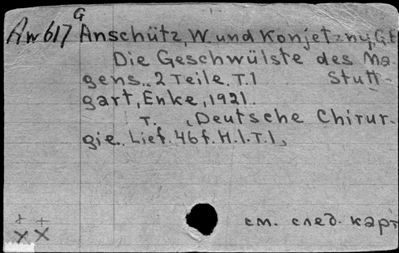 G
Aw617 Anschütz, W. und Konjetzny, G.E
Die Geschwülste des Ma-
gens.. 2 Teile. T.1 Stutt-
gart, Enke, 1921.
T. (Deutsche Chirur-
gie.. Lief. 46f. H.1.T.1,
+ +
X X см. след. карт